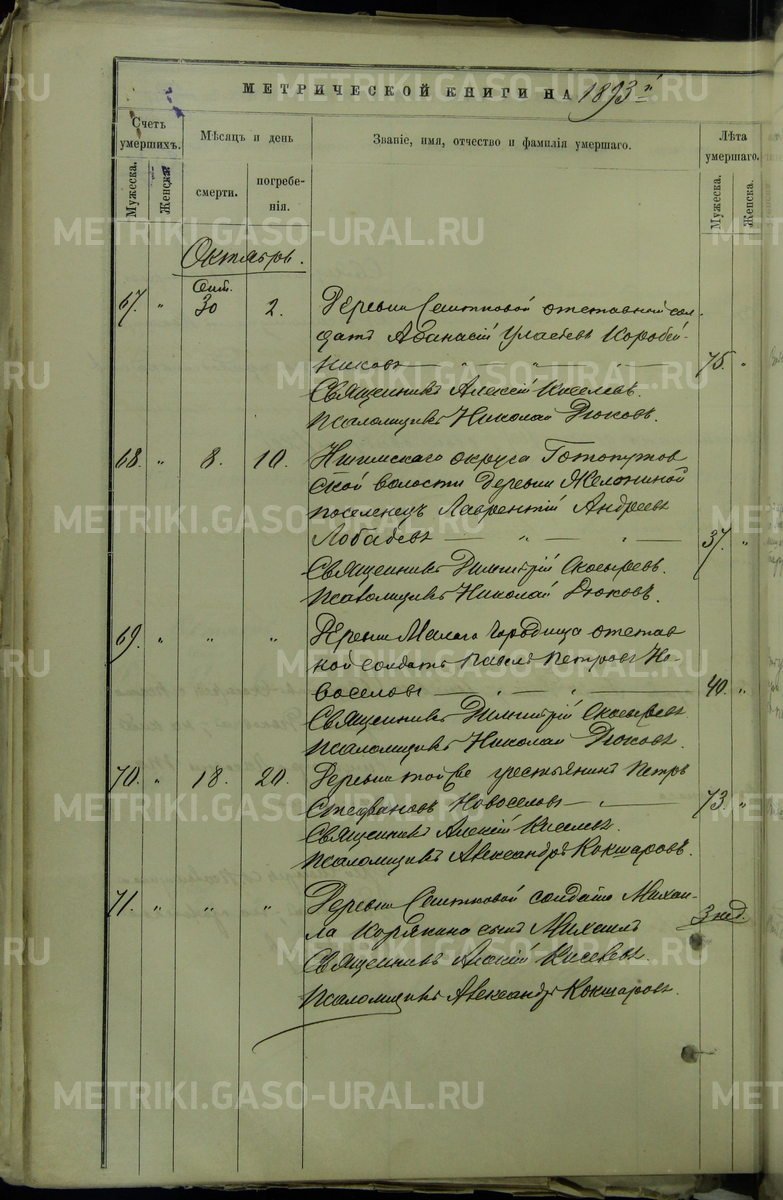 МЕТРИЧЕСКОЙ КНИГИ НА 1893й
Счетъ умершихъ.
Мужеска.
Женска.
Мѣсяцъ и день
смерти.
погребенія.
Званіе, имя, отчество и фамилія умершаго.
Лѣта умершаго.
Мужеска.
Женска.
Октябрь.
67. " Сент. 30 2. Деревни отставной сол-
датъ Афанасій Коробей-
никовъ — " — " — 75. "
Священникъ Алексій Киселевъ.
Псаломщикъ Николай Дюковъ.
68. " 8. 10. Ишимскаго округа Готопутов
ской волости Деревни
поселенецъ Лаврентій Андреевъ
Лобачевъ — " — " — 37. "
Священникъ Димитрій Скосыревъ.
Псаломщикъ Николай Дюковъ.
69. " " " Деревни Малаго Городища отстав
ной солдатъ Павелъ Петровъ Но-
воселовъ — " — " — 40. "
Священникъ Димитрій Скосыревъ
Псаломщикъ Николай Дюковъ.
70. " 18. 20. Деревни той же крестьянинъ Петръ
Стефановъ Новоселовъ — " — 73. "
Священникъ Алексій Киселевъ.
Псаломщикъ Александръ Кокшаровъ.
71. " " " Деревни солдата Михаи-
ла Корякина сынъ Михаилъ 3 нед.
Священникъ Алексій Киселевъ.
Псаломщикъ Александръ Кокшаровъ.
METRIKI.GASO-URAL.RU